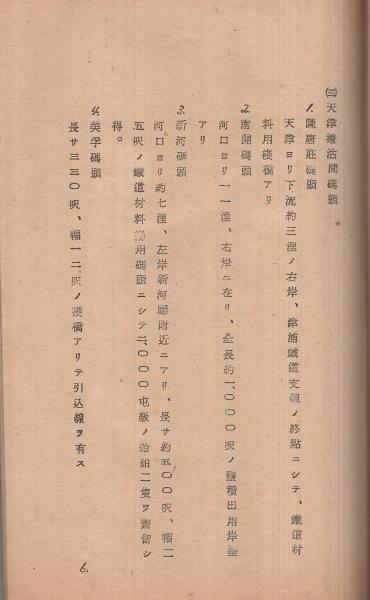 ㈢天津塘沽間碼頭
1.陳唐莊碼頭
天津ヨリ下流約三浬ノ右岸、津浦鐵道支線ノ終點ニシテ、鐵道材
料用棧橋アリ
2.南開碼頭
河口ヨリ一一浬、右岸ニ在リ、全長約一、〇〇〇呎ノ鹽積出用岸壁
アリ
3.新河碼頭
河口ヨリ約七浬、左岸新河驛附近ニアリ、長サ約五〇〇呎、幅二
五呎ノ鐵道材料 用碼頭ニシテ二、〇〇〇屯級ノ船舶二隻ヲ繋留シ
得。
4.美孚碼頭
長サ三三〇呎、幅一二呎ノ淺橋アリテ引込線ヲ有ス
6.